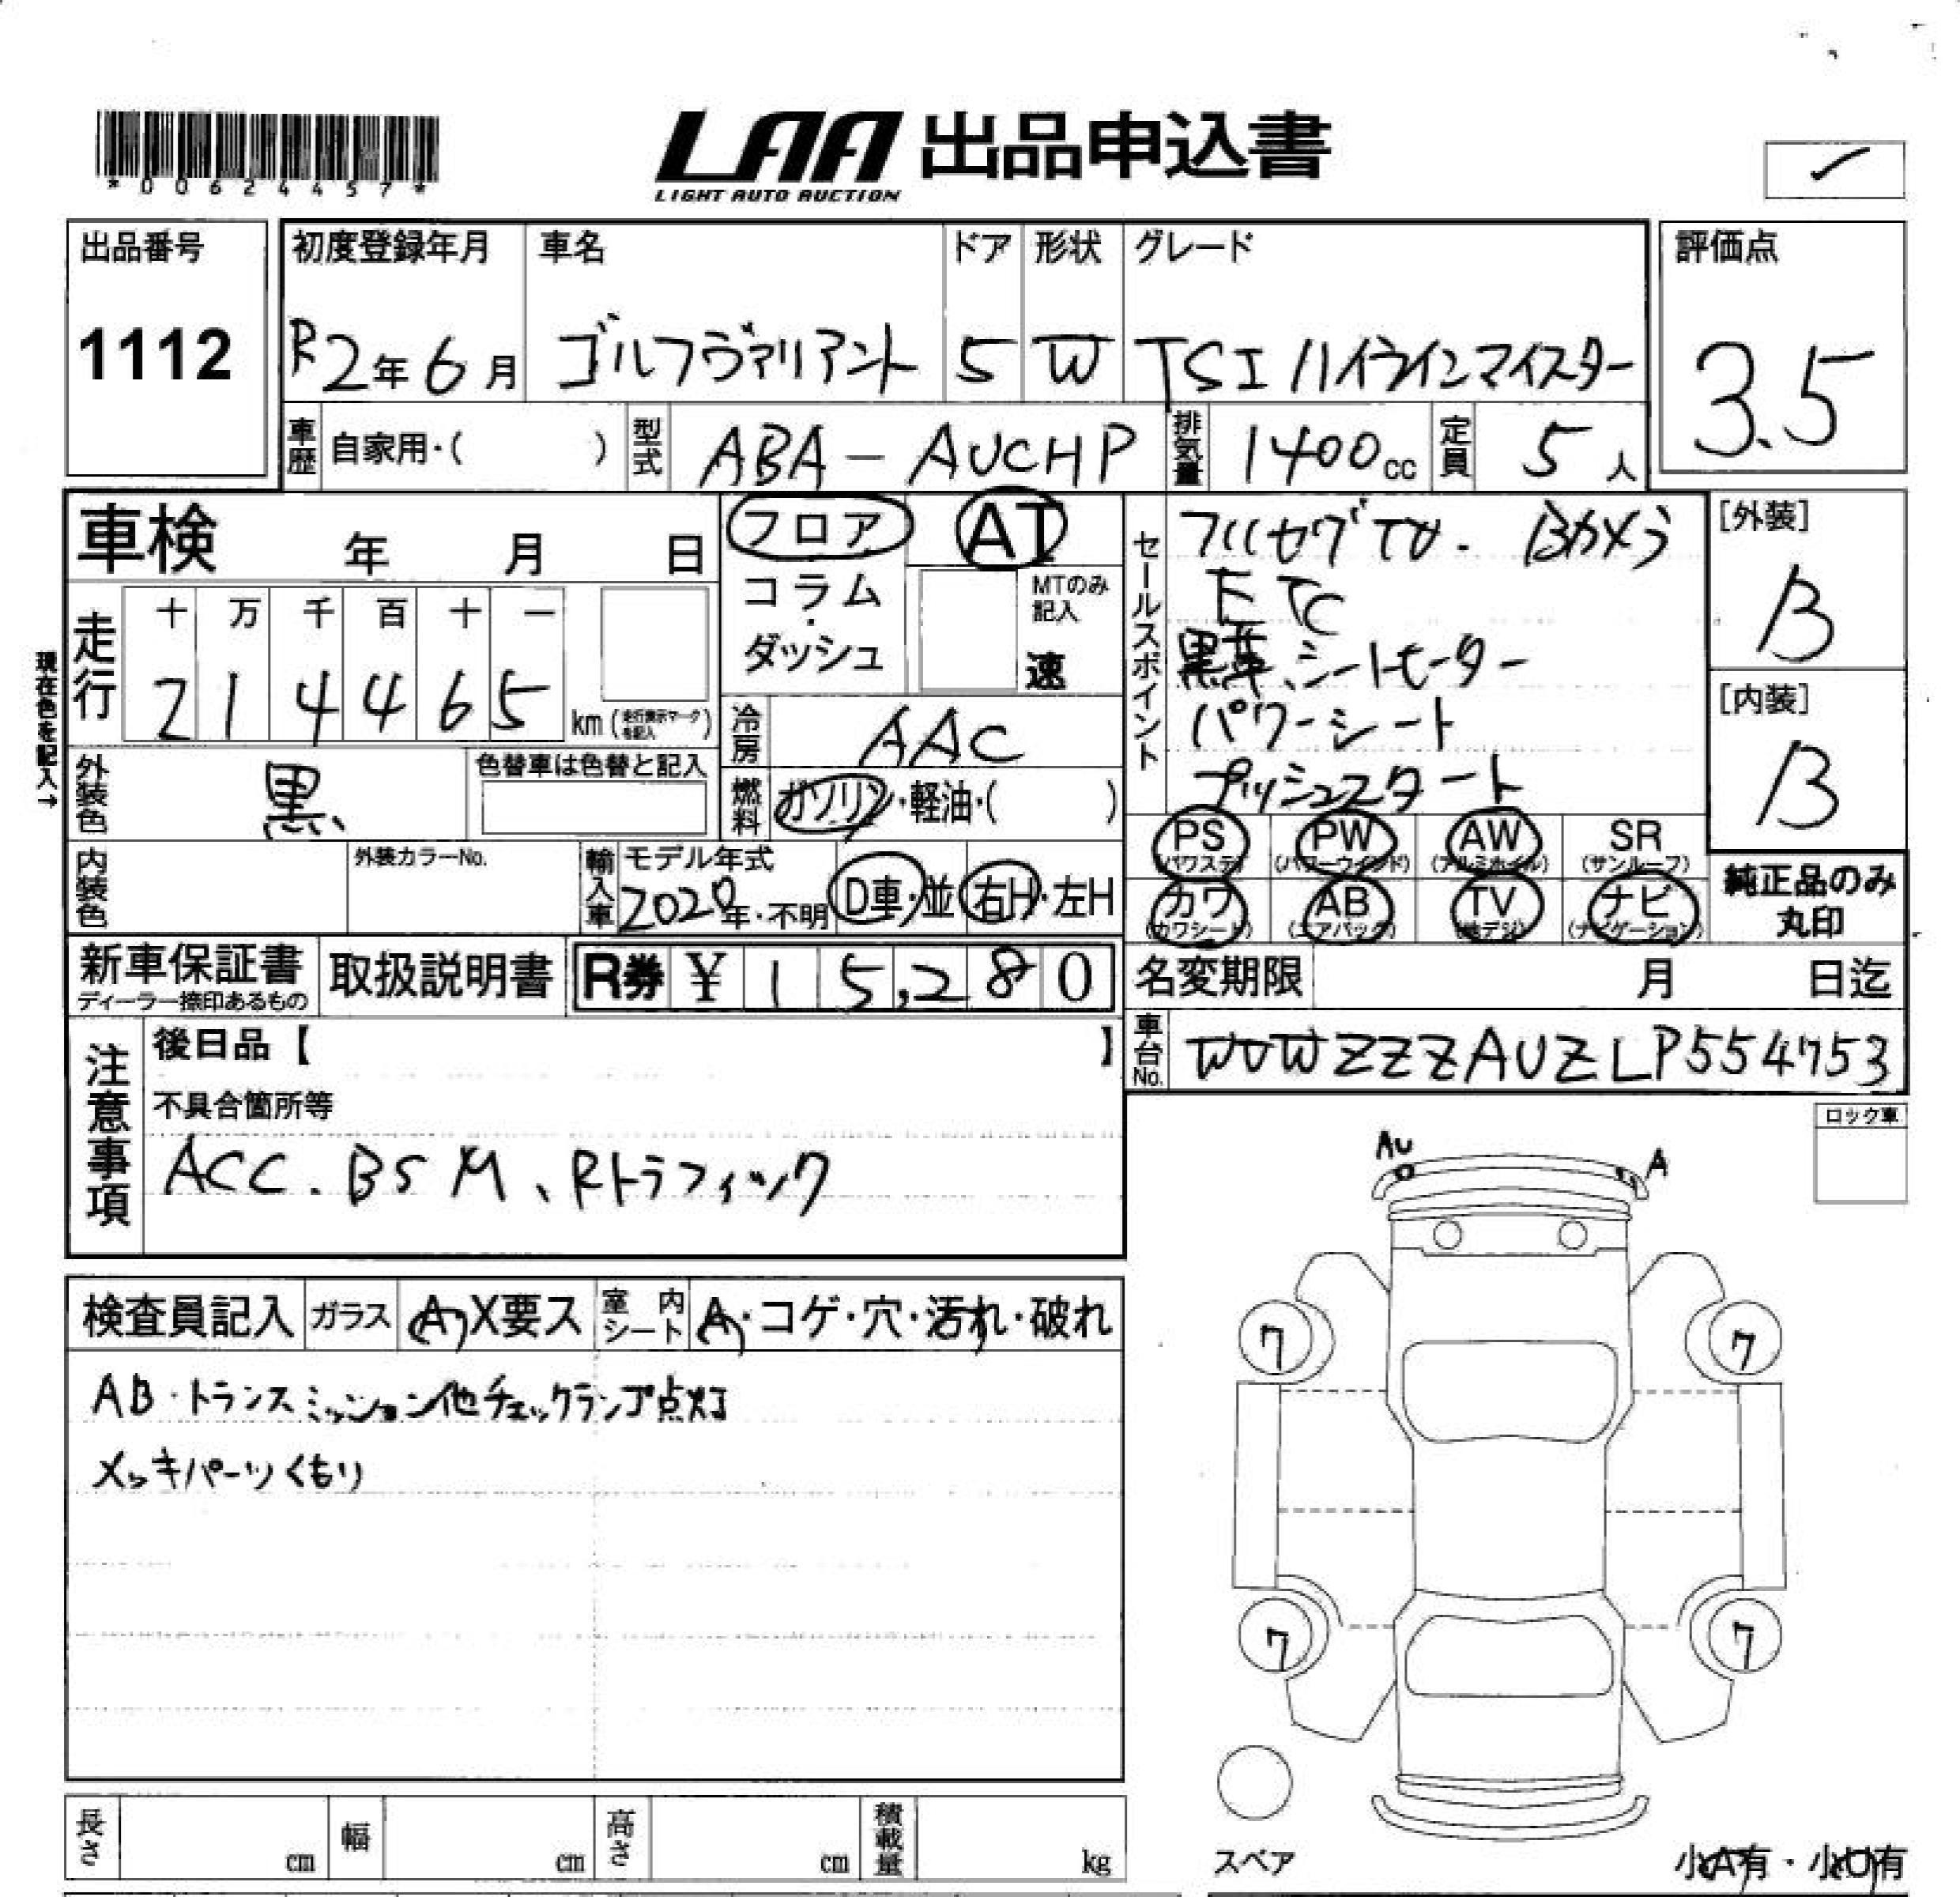 *00624457*
LAA 出品申込書
LIGHT AUTO AUCTION
出品番号
1112
初度登録年月
R2年6月
車名
ゴルフヴァリアント
ドア
5
形状
W
グレード
TSI ハイラインマイスター
評価点
3.5
車歴
自家用・( )
型式
ABA-AUCHP
排気量
1400cc
定員
5人
車検 年 月 日
現在色を記入→
走行
十 万 千 百 十 一
2 1 4 4 6 5
km(走行表示マークを記入)
外装色
黒
色替車は色替と記入
内装色
外装カラーNo.
輸入車
モデル年式
2020年・不明
D車・並
右H・左H
フロア
コラム
・
ダッシュ
AT
MTのみ記入
速
冷房
AAC
燃料
ガソリン・軽油・( )
セールスポイント
フルセグTV. Bカメラ
ETC
黒革、シートヒーター
パワーシート
プッシュスタート
[外装]
B
[内装]
B
PS
(パワステ)
PW
(パワーウインド)
AW
(アルミホイル)
SR
(サンルーフ)
カワ
(カワシート)
AB
(エアバック)
TV
(地デジ)
ナビ
(ナビゲーション)
純正品のみ
丸印
新車保証書
ディーラー捺印あるもの
取扱説明書
R券 ¥ 15,280
名変期限 月 日迄
車台No.
WVWZZZAUZLP554753
注意事項
後日品【 】
不具合箇所等
ACC. BSM、Rトラフィック
ロック車
検査員記入
ガラス
A X要ス
室内シート
A・コゲ・穴・汚れ・破れ
AB・トランスミッション他チェックランプ点灯
メッキパーツくもり
AU
A
7
7
7
7
スペア
小A有・小U有
長さ cm
幅 cm
高さ cm
積載量 kg